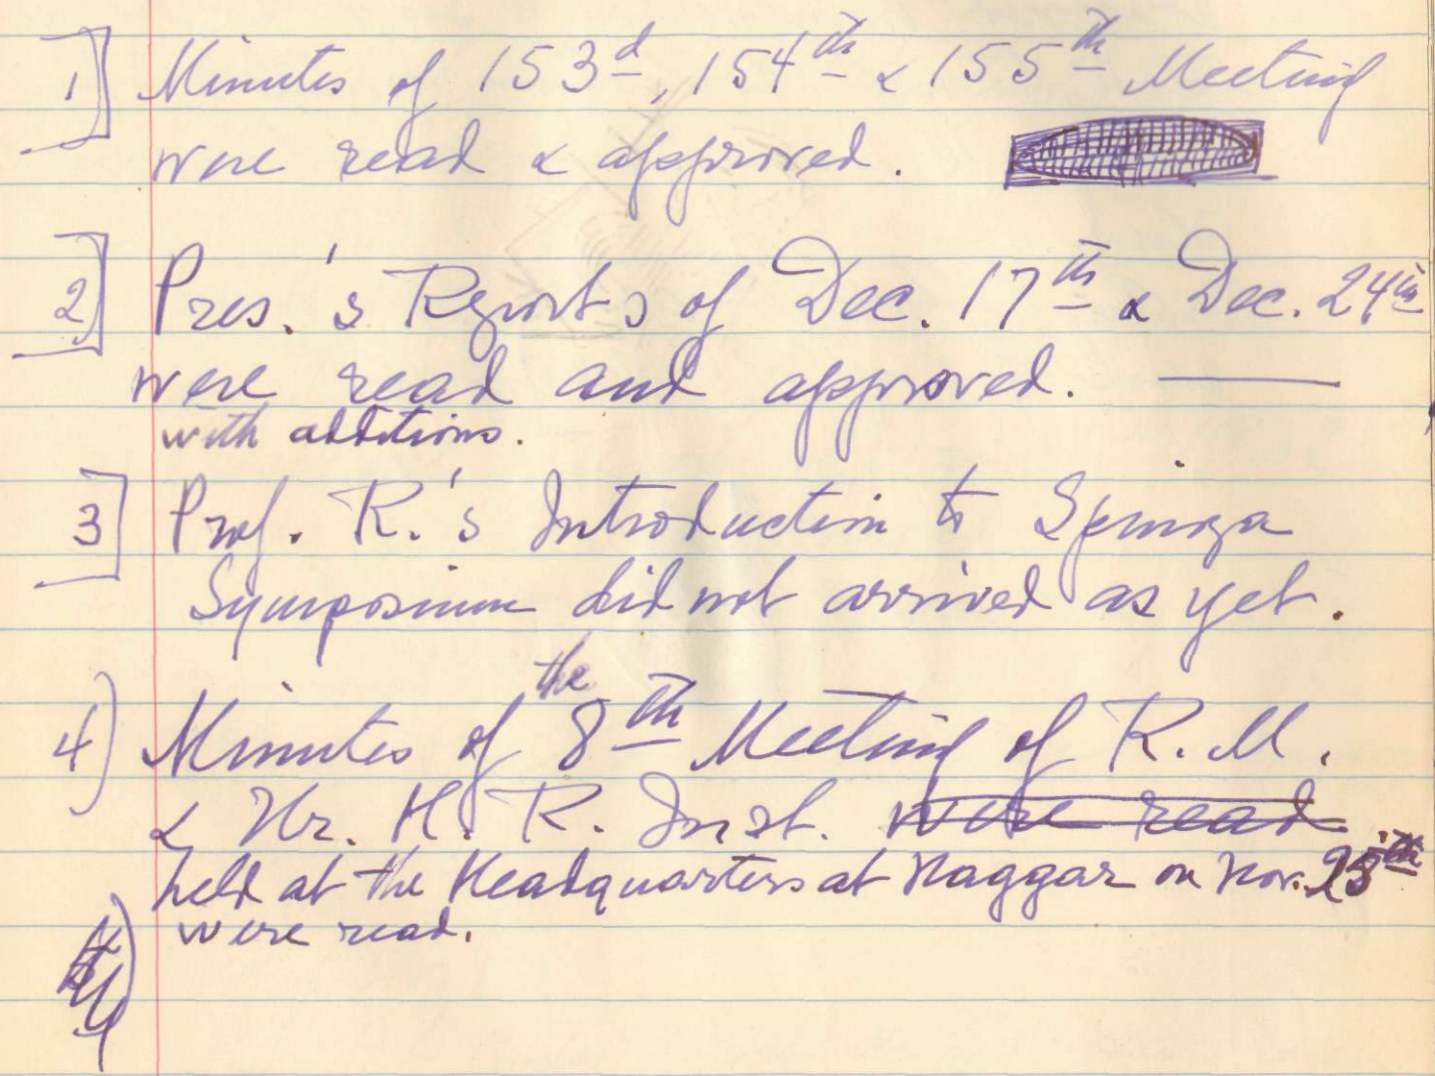 1] Minutes of 153d, 154th & 155th Meeting
were read & approved.
2] Pres.'s Reports of Dec. 17th & Dec. 24th
were read and approved.
with additions.
3] Prof. R.'s Introduction to Spinoza
Symposium did not arrived as yet.
4) Minutes of the 8th Meeting of R. M.
& Ur. H. R. Inst. were read
held at the Headquarters at Naggar on Nov. 25th
were read.